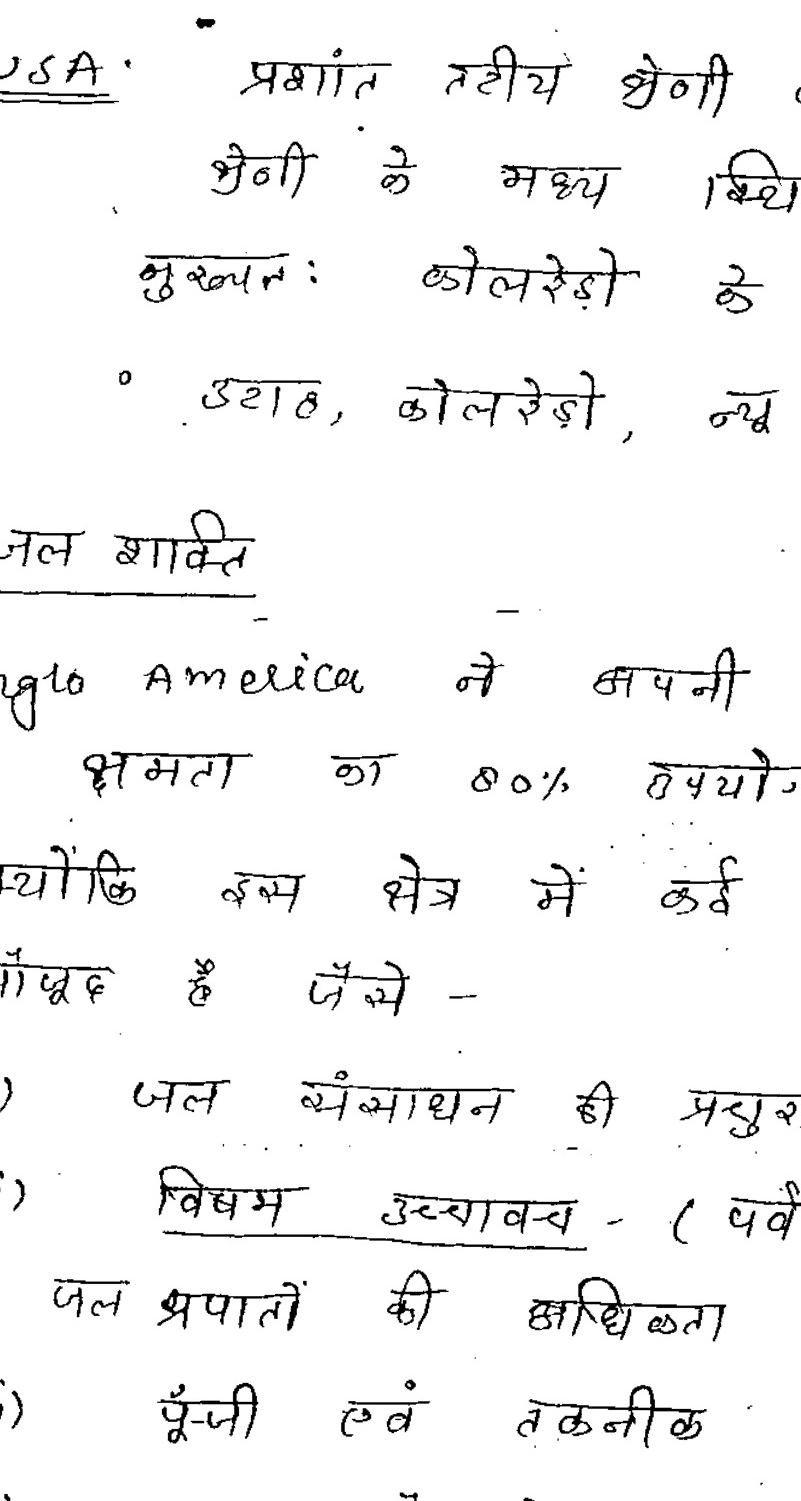 USA: प्रशांत तटीय श्रेणी
श्रेणी के मध्य स्थि
मुख्यतः कोलरेडो के
° उटाह, कोलरेडो, न्यू
जल शक्ति
nglo America ने अपनी
क्षमता का 80% उपयो
क्योंकि इस क्षेत्र में कई
मौजूद है जैसे -
) जल संसाधन की प्रचुर
) विषम उच्चावच - ( पर्व
जल प्रपातों की अधिकता
) पूँजी एवं तकनीक